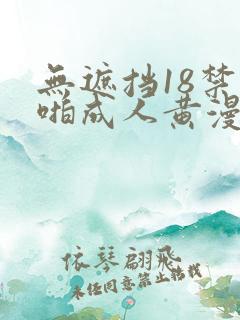 無遮挡18禁
啪成人黄漫
依琴翩飛
未经同意禁止转载